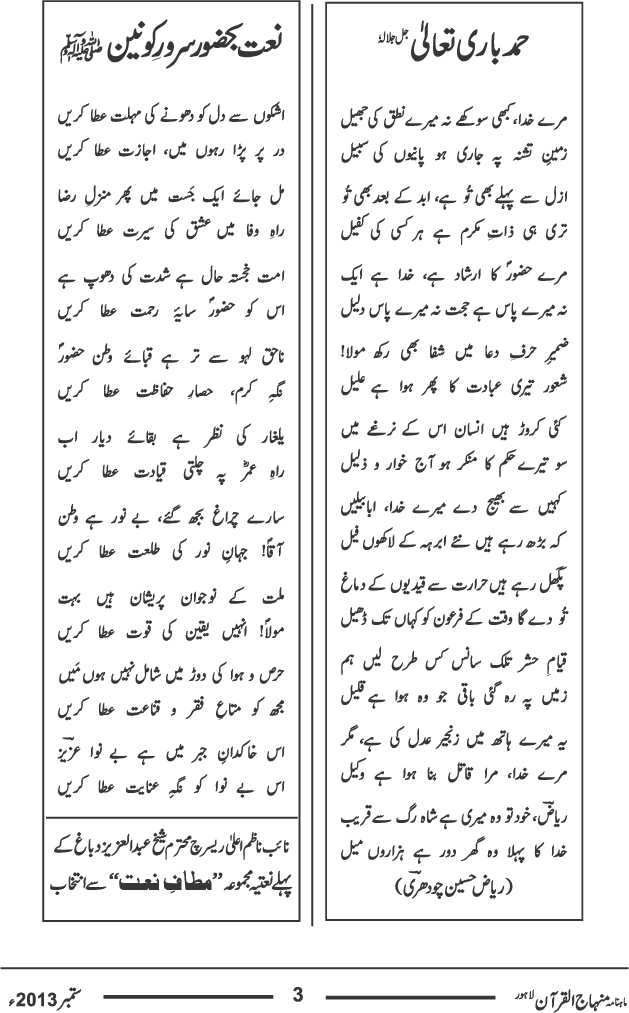 حمد باری تعالیٰ جل جلالہ
مرے خدا، کبھی سوکھے نہ میرے نطق کی جھیل
زمینِ تشنہ پہ جاری ہو پانیوں کی سبیل
ازل سے پہلے بھی تُو ہے، ابد کے بعد بھی تُو
تری ہی ذاتِ مکرم ہے ہر کسی کی کفیل
مرے حضورؐ کا ارشاد ہے، خدا ہے ایک
نہ میرے پاس ہے حجت نہ میرے پاس دلیل
ضمیرِ حرفِ دعا میں شفا بھی رکھ مولا!
شعور تیری عبادت کا پھر ہوا ہے علیل
کئی کروڑ ہیں انسان اس کے نرغے میں
سو تیرے حکم کا منکر ہو آج خوار و ذلیل
کہیں سے بھیج دے میرے خدا، ابابیلیں
کہ بڑھ رہے ہیں نئے ابرہہ کے لاکھوں فیل
پگھل رہے ہیں حرارت سے قیدیوں کے دماغ
تُو دے گا وقت کے فرعون کو کہاں تک ڈھیل
قیامِ حشر تلک سانس کس طرح لیں ہم
زمیں پہ رہ گئی باقی جو وہ ہوا ہے قلیل
یہ میرے ہاتھ میں زنجیر عدل کی ہے، مگر
مرے خدا، مرا قاتل بنا ہوا ہے وکیل
ریاضؔ، خود تو وہ میری ہے شاہ رگ سے قریب
خدا کا پہلا وہ گھر دور ہے ہزاروں میل
(ریاض حسین چودھریؔ)
نعت بحضور سرورِ کونین ﷺ
اشکوں سے دل کو دھونے کی مہلت عطا کریں
در پر پڑا رہوں میں، اجازت عطا کریں
مل جائے ایک جَست میں پھر منزلِ رضا
راہِ وفا میں عشق کی سیرت عطا کریں
امت خجستہ حال ہے شدت کی دھوپ ہے
اس کو حضورؐ سایۂ رحمت عطا کریں
ناحق لہو سے تر ہے قبائے وطن حضورؐ
نگہِ کرم، حصارِ حفاظت عطا کریں
یلغار کی نظر ہے بقائے دیار اب
راہِ عمرؓ پہ چلتی قیادت عطا کریں
سارے چراغ بجھ گئے، بے نور ہے وطن
آقاؐ! جہانِ نور کی طلعت عطا کریں
ملت کے نوجوان پریشان ہیں بہت
مولاؐ! انہیں یقین کی قوت عطا کریں
حرص و ہوا کی دوڑ میں شامل نہیں ہوں مَیں
مجھ کو متاعِ فقر و قناعت عطا کریں
اس خاکدانِ جبر میں ہے بے نوا عزیزؔ
اس بے نوا کو نگہِ عنایت عطا کریں
نائب ناظم اعلیٰ ریسرچ محترم شیخ عبدالعزیز دباغ کے
پہلے نعتیہ مجموعہ ’’مطافِ نعت‘‘ سے انتخاب
ماہنامہ منہاج القرآن لاہور
3
ستمبر 2013ء